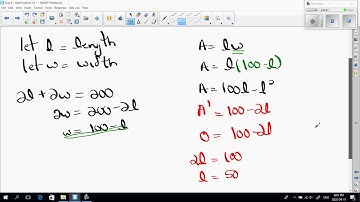 let l = length
let w = width
2l + 2w = 200
2w = 200 - 2l
w = 100 - l
A = lw
A = l(100-l)
A = 100l - l²
A' = 100 - 2l
0 = 100 - 2l
2l = 100
l = 50